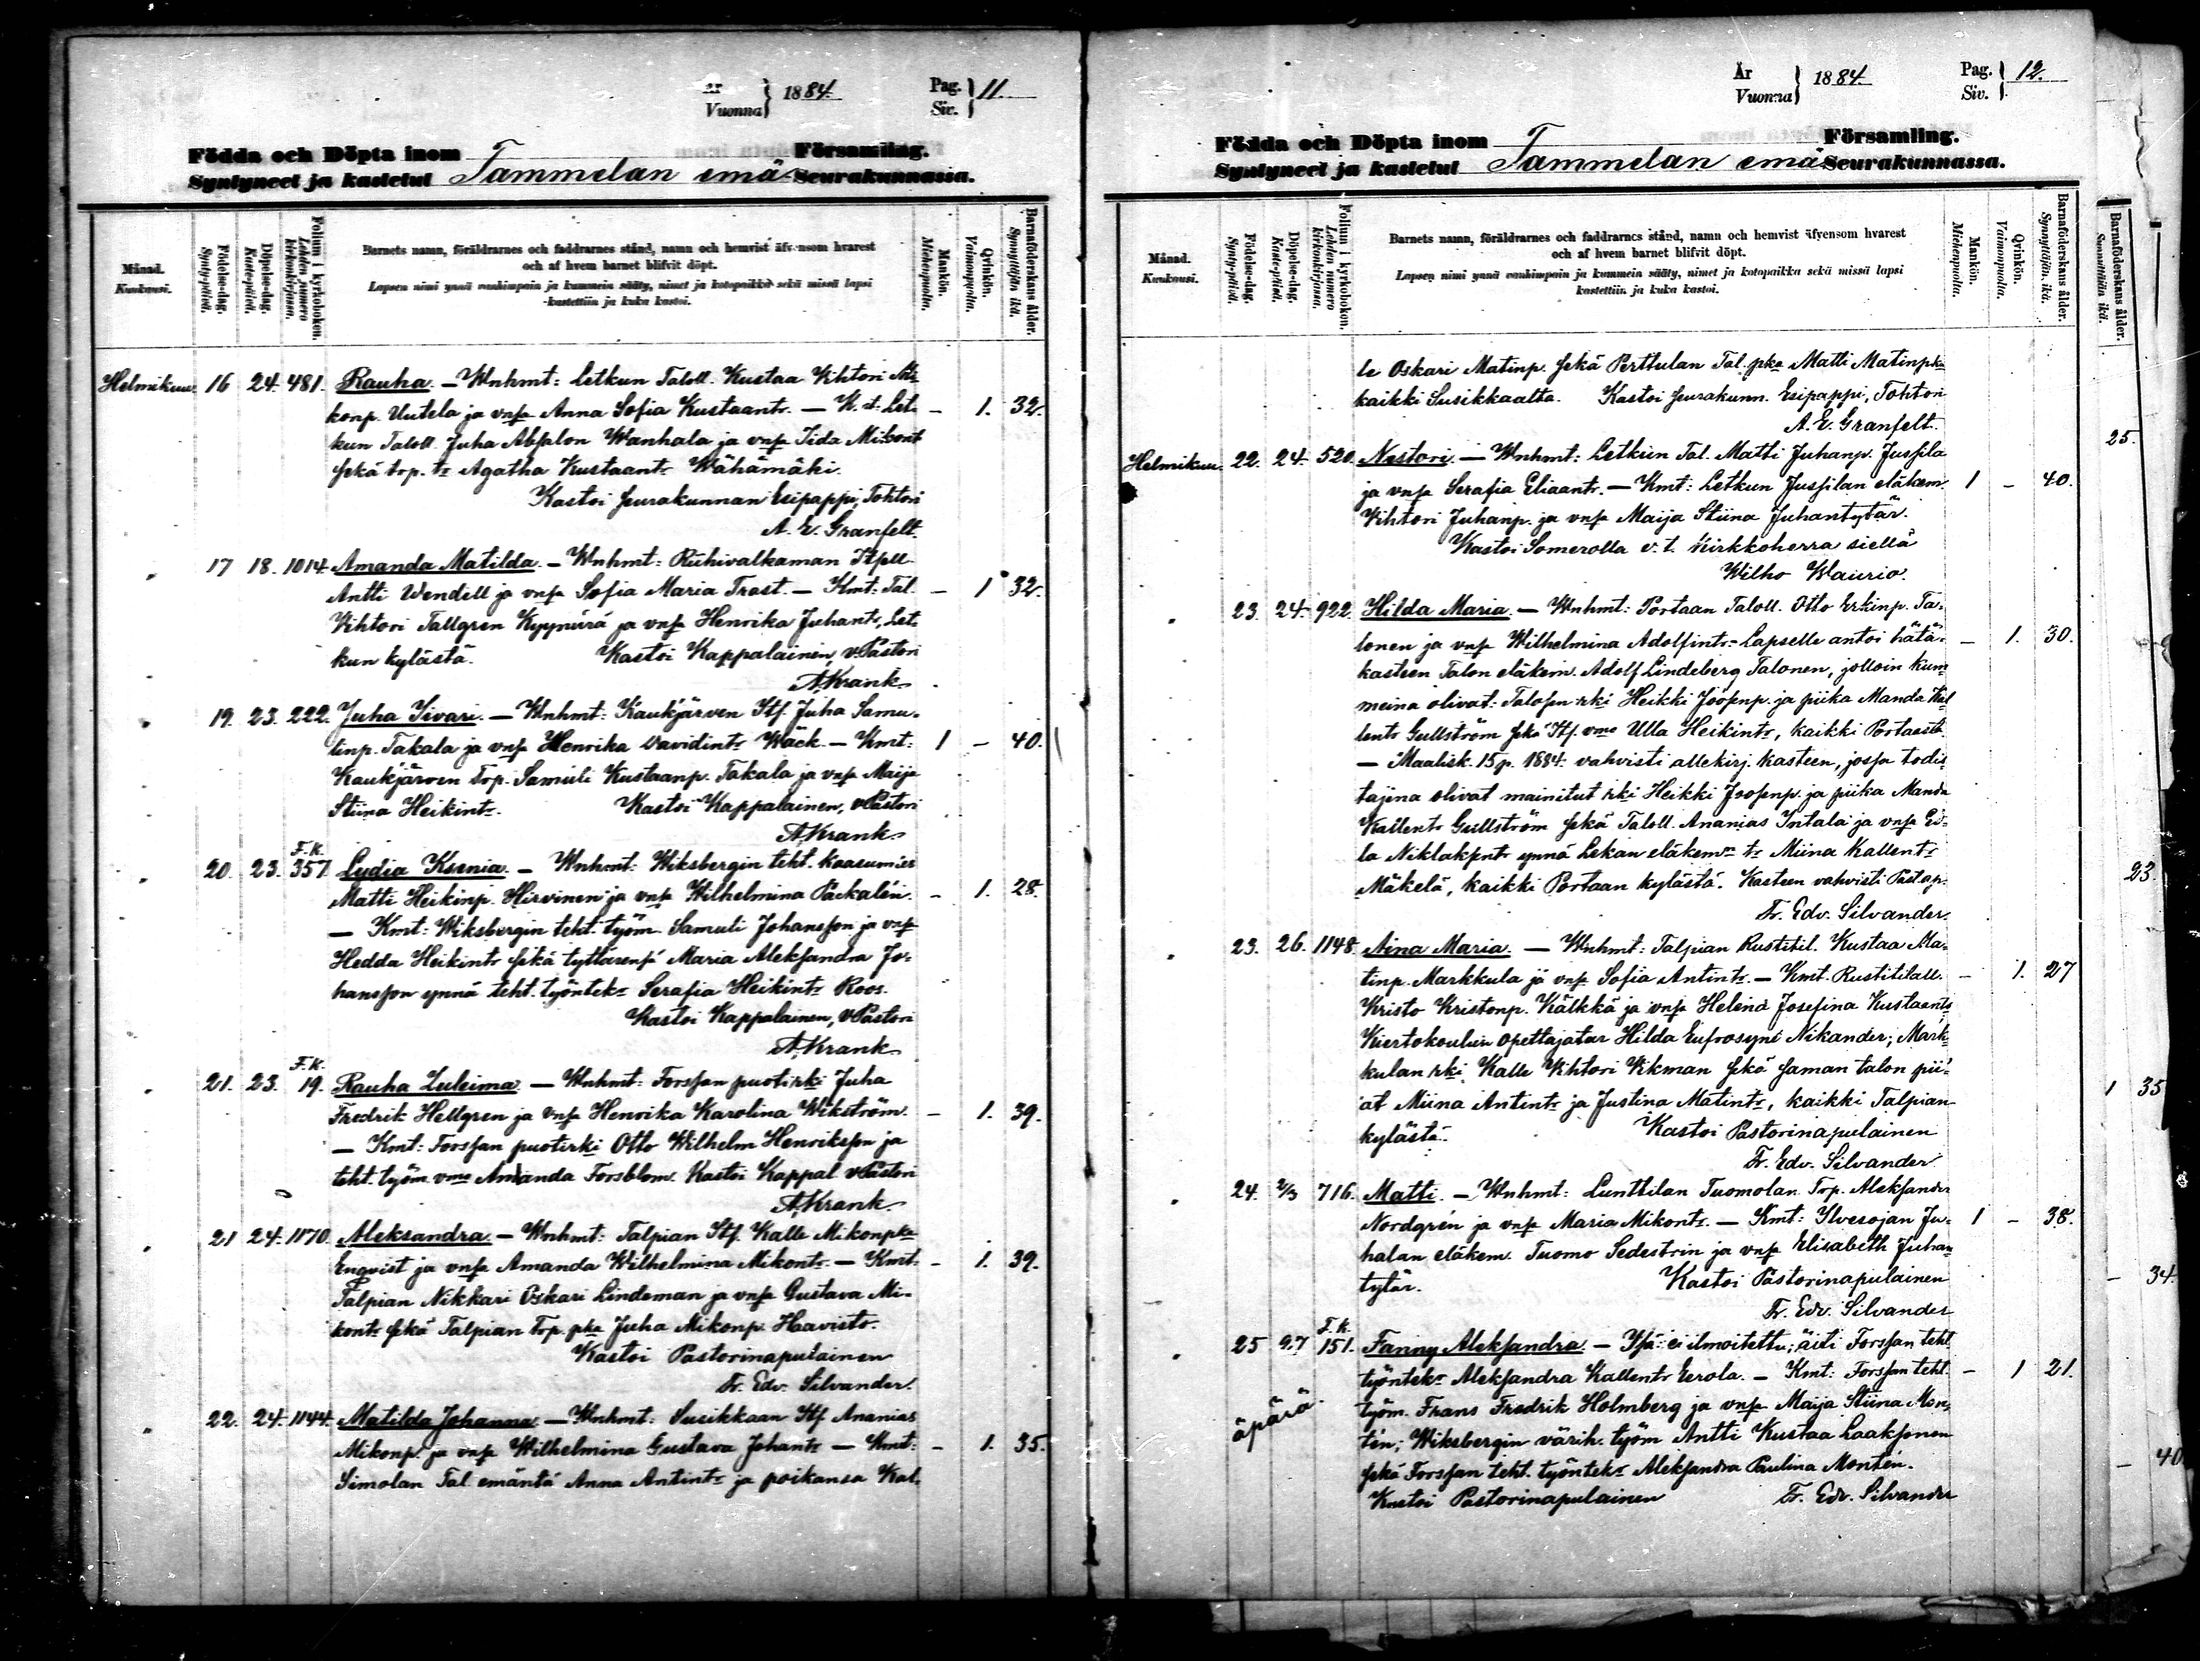 År
Vuonna } 1884.
Pag.
Siv. } 11.
Födda och Döpta inom Församling.
Syntyneet ja kastetut Tammelan emä Seurakunnassa.
Månad.
Kuukausi.
Födelse-dag.
Synty-päivä.
Döpelse-dag.
Kaste-päivä.
Folium i kyrkoboken.
Lehden numero kirkonkirjassa.
Barnets namn, föräldrarnes och faddrarnes stånd, namn och hemvist äfvensom hvarest
och af hvem barnet blifvit döpt.
Lapsen nimi ynnä vanhimpain ja kummein sääty, nimet ja kotopaikka sekä missä lapsi
kastettiin ja kuka kastoi.
Mankön.
Miehenpuolta.
Qvinkön.
Vaimonpuolta.
Barnaföderskans ålder.
Synnyttäjän ikä.
Helmikuu 16 24. 481. Rauha. — Wnhmt: Letkun Taloll. Kustaa Vihtori Mi-
konp. Uutela ja vnsa Anna Sofia Kustaantr. — K. t. Let- — 1. 32.
kun Taloll. Juha Absalon Wanhala ja vnsa Iida Mikont
sekä trp. tr Agatha Kustaantr Wähämäki.
Kastoi seurakunnan Esipappi, Tohtori
A. E. Granfelt.
" 17 18. 1014. Amanda Matilda. — Wnhmt: Riihivalkaman Itpll
Antti Wendell ja vnsa Sofia Maria Trast. — Kmt: Tal. — 1 32.
Vihtori Tallgren Kyynärä ja vnsa Henrika Juhantr, Let-
kun kylästä. Kastoi Kappalainen, v. Pastori
A. Krank
" 19. 23. 222. Juha Iivari. — Wnhmt: Kaukjärven Itf. Juha Samu-
linp. Takala ja vnsa Henrika Davidintr Wäck. — Kmt: 1 — 40.
Kaukjärven Trp. Samuli Kustaanp. Takala ja vnsa Maija
Stiina Heikintr. Kastoi Kappalainen, v. Pastori
A. Krank
F. K.
" 20. 23. 357. Lydia Ksenia. — Wnhmt: Wiksbergin teht. kaasumies
Matti Heikinp. Hirvinen ja vnsa Wilhelmina Päckalén. — 1. 28.
— Kmt: Wiksbergin teht. työm. Samuli Johansson ja vnsa
Hedda Heikintr sekä tyttärensä Maria Aleksandra Jo-
hansson ynnä teht. työntekr Serafia Heikintr Roos.
Kastoi Kappalainen, v. Pastori
A. Krank
F. K.
" 21. 23. 19. Rauha Zuleima — Wnhmt: Forssan puotirki Juha
Fredrik Hellgren ja vnsa Henrika Karolina Wikström. — 1. 39.
— Kmt: Forssan puotirki Otto Wilhelm Henriksson ja
teht. työm. vmo Amanda Forsblom. Kastoi Kappal. v. Pastori
A. Krank
" 21 24. 1170. Aleksandra — Wnhmt: Talpian Itf. Kalle Mikonpka
Enqvist ja vnsa Amanda Wilhelmina Mikontr. — Kmt. — 1. 39.
Talpian Nikkari Oskari Lindeman ja vnsa Gustava Mi-
kontr sekä Talpian Trp. pka Juha Mikonp. Haavisto.
Kastoi Pastorinapulainen
Fr. Edv. Silvander.
" 22. 24. 1144. Matilda Johanna — Wnhmt: Susikkaan Itf Ananias
Mikonp. ja vnsa Wilhelmina Gustava Johantr — Kmt: — 1. 35.
Simolan Tal. emäntä Anna Antintr ja poikansa Kal-
År
Vuonna } 1884.
Pag.
Siv. } 12.
Födda och Döpta inom Församling.
Syntyneet ja kastetut Tammelan emä Seurakunnassa.
Månad.
Kuukausi.
Födelse-dag.
Synty-päivä.
Döpelse-dag.
Kaste-päivä.
Folium i kyrkobokon.
Lehden numero kirkonkirjassa.
Barnets namn, föräldrarnes och faddrarnes stånd, namn och hemvist äfvensom hvarest
och af hvem barnet blifvit döpt.
Lapsen nimi ynnä vanhimpain ja kummein sääty, nimet ja kotopaikka sekä missä lapsi
kastettiin ja kuka kastoi.
Mankön.
Miehenpuolta.
Qvinkön.
Vaimonpuolta.
Barnaföderskans ålder.
Synnyttäjän ikä.
le Oskari Matinp. sekä Perttulan Tal. pka Matti Matinpka
kaikki Susikkaalta. Kastoi seurakunn. Esipappi, Tohtori
A. E. Granfelt.
Helmikuu. 22. 24. 520. Nestori. — Wnhmt: Letkun Tal. Matti Juhanp. Jussila
ja vnsa Serafia Eliaantr. — Kmt: Letkun Jussilan eläkem. 1 — 40.
Vihtori Juhanp. ja vnsa Maija Stiina Juhantytär.
Kastoi Somerolla v. t. Kirkkoherra siellä
Wilho Waurio.
" 23. 24. 922. Hilda Maria. — Wnhmt: Portaan Taloll. Otto Erkinp. Ta-
lonen ja vnsa Wilhelmina Adolfintr. Lapselle antoi hätä- — 1. 30.
kasteen Talon eläkem. Adolf Lindeberg Talonen, jolloin kum-
meina olivat: Talosen rki Heikki Joosenp. ja piika Manda Kal-
lentr Gullström sekä Itf. vmo Ulla Heikintr, kaikki Portaasta
— Maalisk. 15 p. 1884. vahvisti allekirj. kasteen, jossa todis-
tajina olivat mainitut rki Heikki Joosenp. ja piika Manda
Kallentr Gullström sekä Taloll. Ananias Intala ja vnsa Ed-
la Niklaksentr ynnä Lekan eläkemn tr Miina Kallentr
Mäkelä, kaikki Portaan kylästä. Kasteen vahvisti Past. ap.
Fr. Edv. Silvander.
" 23. 26. 1148. Aina Maria. — Wnhmt: Talpian Rusttil. Kustaa Ma-
tinp. Markkula ja vnsa Sofia Antintr. — Kmt. Rustitilall. — 1. 27
Kristo Kristonp. Kälkkä ja vnsa Helena Josefina Kustaantr
Kiertokoulun opettajatar Hilda Eufrosyne Nikander; Mark-
kulan rki Kalle Vihtori Vikman sekä saman talon pii-
at Miina Antintr ja Justina Matintr, kaikki Talpian
kylästä. Kastoi Pastorinapulainen
Fr. Edv. Silvander
" 24. 2/3 716. Matti. — Wnhmt: Lunttilan Tuomolan Trp. Aleksander
Nordgrén ja vnsa Maria Mikontr. — Kmt: Ilvesojan Ju- 1 — 38.
halan eläkem. Tuomo Sedeström ja vnsa Elisabeth Juhan-
tytär. Kastoi Pastorinapulainen
Fr. Edv. Silvander
F. K.
" 25 27 151. Fanny Aleksandra. — Isä: ei ilmoitettu; äiti Forssan teht.
työntekr Aleksandra Kallentr Eerola. — Kmt: Forssan teht. — 1 21.
äpärä työm. Frans Fredrik Holmberg ja vnsa Maija Stiina Mon-
tén; Wiksbergin värih. työm Antti Kustaa Laaksonen
sekä Forssan teht. työntekr Aleksandra Paulina Montén.
Kastoi Pastorinapulainen Fr. Edv. Silvander
Barnaföderskans ålder.
Synnyttäjän ikä.
25.
23.
1 35
— 34.
— 40